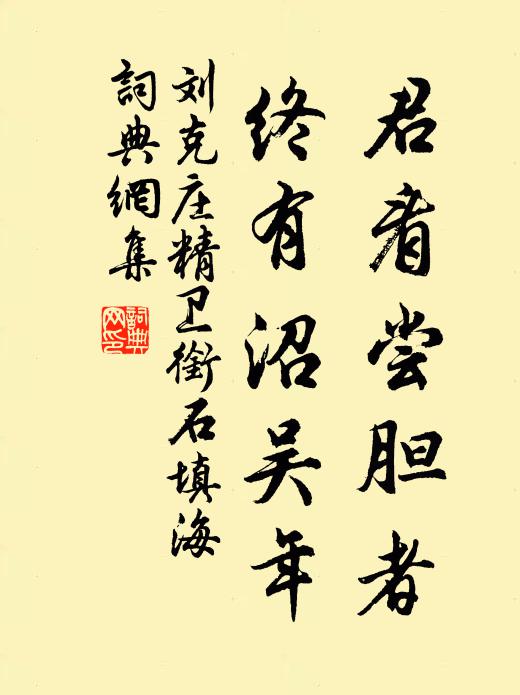 君看尝胆者
终有沼吴年
刘克庄精卫衔石填海
词典網集
詞典
网印